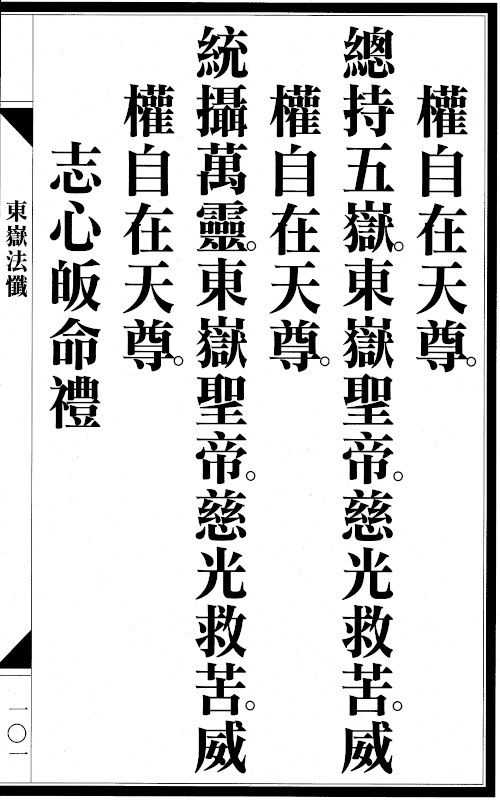 權自在天尊。
總持五嶽。東嶽聖帝。慈光救苦。威
權自在天尊。
統攝萬靈。東嶽聖帝。慈光救苦。威
權自在天尊。
志心皈命禮
東嶽法懺
一〇一